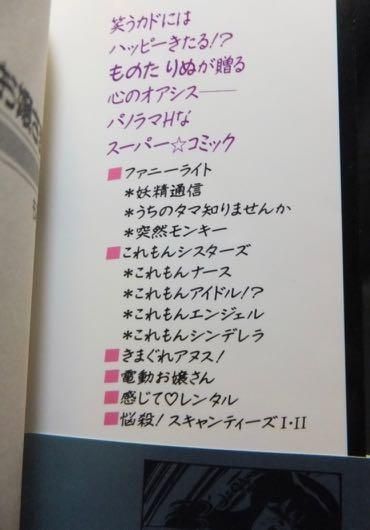 笑うカドには
ハッピーきたる!?
ものたりぬが贈る
心のオアシス——
パノラマHな
スーパー☆コミック
■ファニーライト
*妖精通信
*うちのタマ知りませんか
*突然モンキー
■これもんシスターズ
*これもんナース
*これもんアイドル!?
*これもんエンジェル
*これもんシンデレラ
■きまぐれアヌス!
■電動お嬢さん
■感じて♡レンタル
■悩殺!スキャンティーズI・II